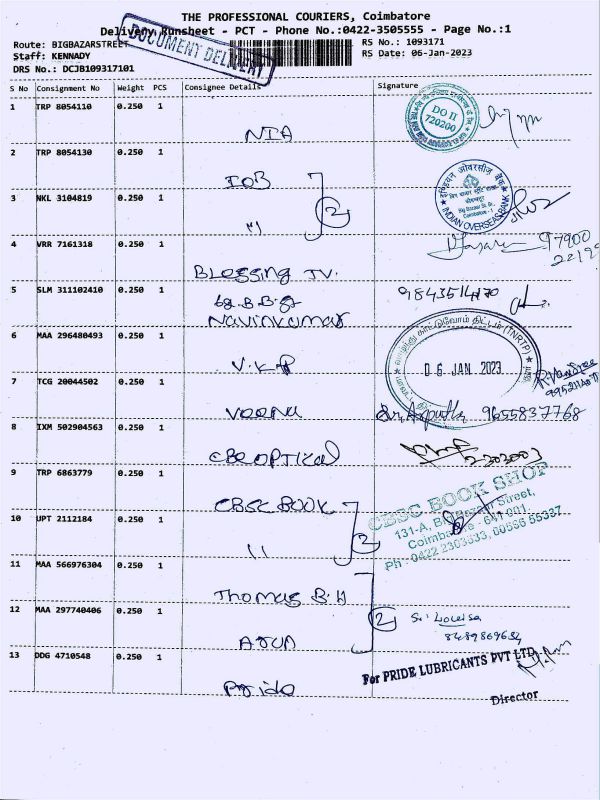 THE PROFESSIONAL COURIERS, Coimbatore
Delivery Runsheet - PCT - Phone No.:0422-3505555 - Page No.:1
Route: BIGBAZARSTREET
RS No.: 1093171
Staff: KENNADY
RS Date: 06-Jan-2023
DRS No.: DCJB109317101
DOCUMENT DELIVERY
S No Consignment No Weight PCS Consignee Details Signature
1 TRP 8054110 0.250 1
NIA
DO II
720200
2 TRP 8054130 0.250 1
IOB
इंडियन ओवरसीज़ बैंक
INDIAN OVERSEAS BANK
3 NKL 3104819 0.250 1
" 2
4 VRR 7161318 0.250 1
Blessing JV.
97900
5 SLM 311102410 0.250 1
Navinkumar
9843514170
6 MAA 296480493 0.250 1
V.K.P
(TNRTP)
06 JAN 2023
7 TCG 20044502 0.250 1
Veenu
9655837768
8 IXM 502904563 0.250 1
CBE OPTICAL
9 TRP 6863779 0.250 1
CBSC BOOK
CBSC BOOK SHOP
10 UPT 2112184 0.250 1
" 2
131-A, Street,
Coimbatore - 641 001.
Ph : 0422 2303633,
11 MAA 566976304 0.250 1
Thomas B.H
12 MAA 297740406 0.250 1
2
8489869654
13 DDG 4710548 0.250 1
Pride
For PRIDE LUBRICANTS PVT LTD
Director